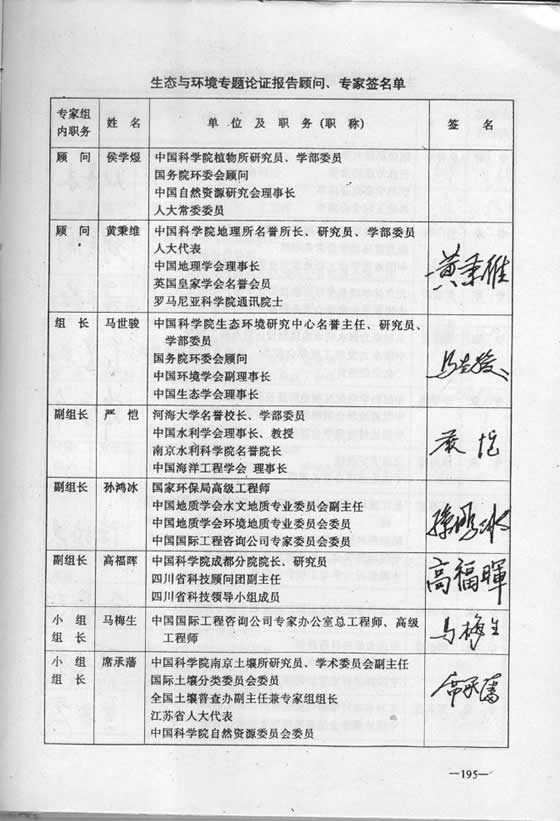 生态与环境专题论证报告顾问、专家签名单
专家组
内职务
姓 名
单 位 及 职 务 (职 称)
签 名
顾 问 侯学煜 中国科学院植物所研究员、学部委员
国务院环委会顾问
中国自然资源研究会理事长
人大常委委员
顾 问 黄秉维 中国科学院地理所名誉所长、研究员、学部委员
人大代表
中国地理学会理事长
英国皇家学会名誉会员
罗马尼亚科学院通讯院士
黄秉维
组 长 马世骏 中国科学院生态环境研究中心名誉主任、研究员、
学部委员
国务院环委会顾问
中国环境学会副理事长
中国生态学会理事长
马世骏
副组长 严 恺 河海大学名誉校长、学部委员
中国水利学会理事长、教授
南京水利科学院名誉院长
中国海洋工程学会 理事长
严恺
副组长 孙鸿冰 国家环保局高级工程师
中国地质学会水文地质专业委员会副主任
中国地质学会环境地质专业委员会委员
中国国际工程咨询公司专家委员会委员
孫鸿冰
副组长 高福晖 中国科学院成都分院院长、研究员
四川省科技顾问团副主任
四川省科技领导小组成员
高福暉
小 组
组 长
马梅生 中国国际工程咨询公司专家办公室总工程师、高级
工程师
马梅生
小 组
组 长
席承藩 中国科学院南京土壤所研究员、学术委员会副主任
国际土壤分类委员会委员
全国土壤普查办副主任兼专家组组长
江苏省人大代表
中国科学院自然资源委员会委员
席承藩
—195—